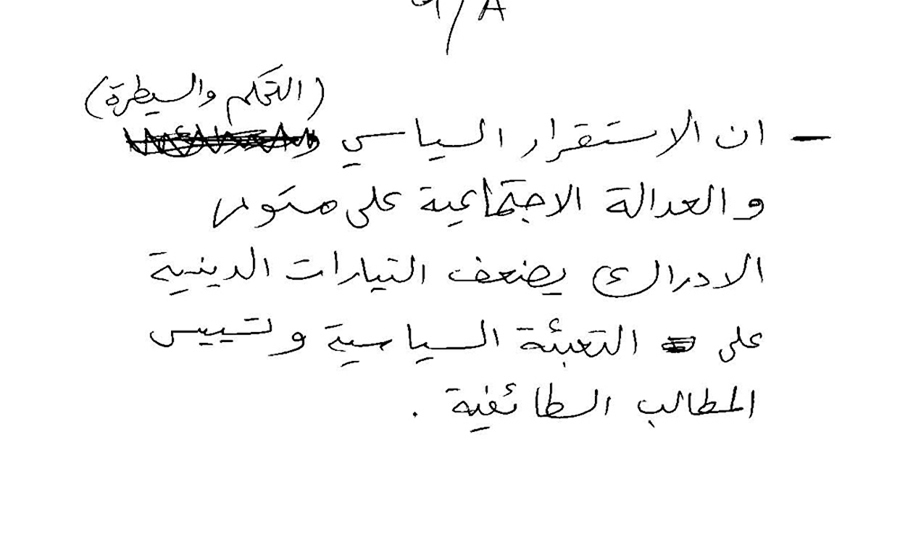 (التحكم والسيطرة)
- ان الاستقرار السياسي
والعدالة الاجتماعية على مستوى
الادراك يضعف التيارات الدينية
على التعبئة السياسية وتسييس
المطالب الطائفية .